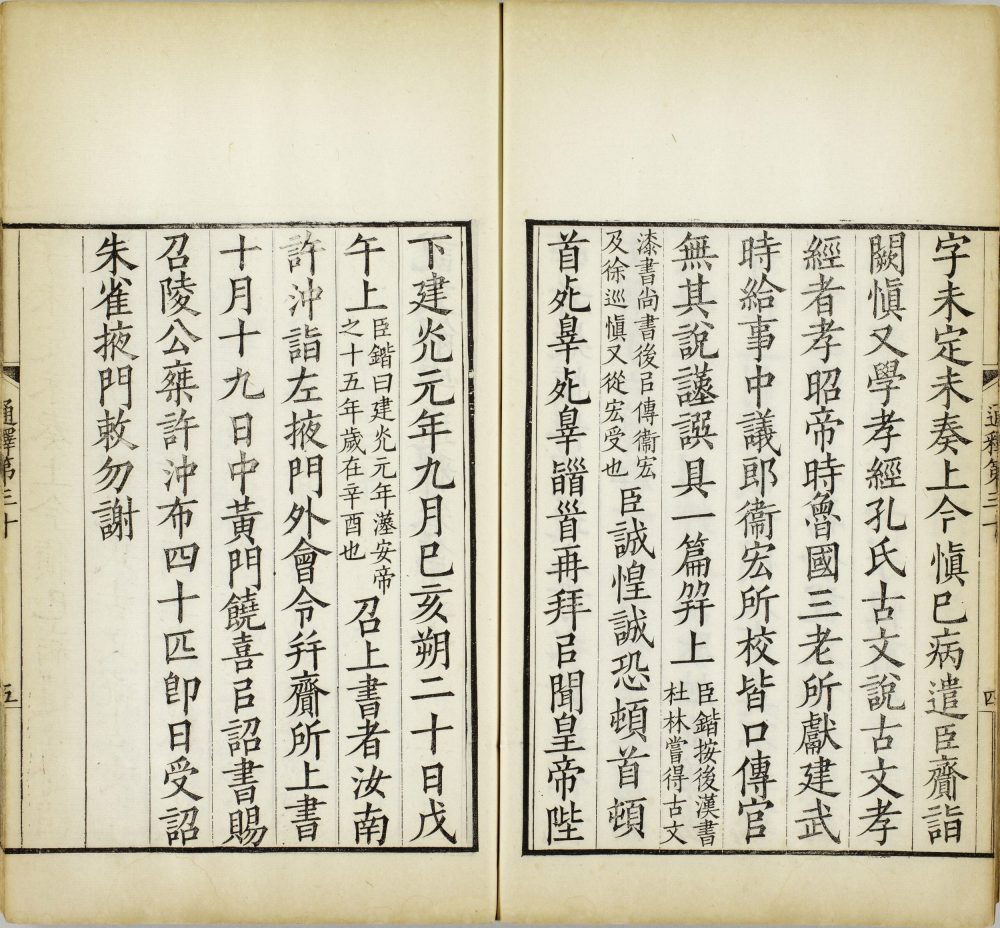 字未定未奏上今愼巳病遣臣齎詣
闕愼又學孝經孔氏古文說古文孝
經者孝昭帝時魯國三老所獻建武
時給事中議郎衞宏所校皆口傳官
無其說謹譔具一篇幷上臣鍇按後漢書
杜林嘗得古文
漆書尚書後㠯傳衞宏
及徐巡愼又從宏受也臣誠惶誠恐頓首頓
首死辠死辠䭫首再拜㠯聞皇帝陛
通釋第三十 四
下建光元年九月巳亥朔二十日戊
午上臣鍇曰建光元年漢安帝
之十五年歲在辛酉也召上書者汝南
許沖詣左掖門外會令幷齎所上書
十月十九日中黃門饒喜㠯詔書賜
召陵公乘許沖布四十匹卽日受詔
朱雀掖門敕勿謝
通釋第三十 五